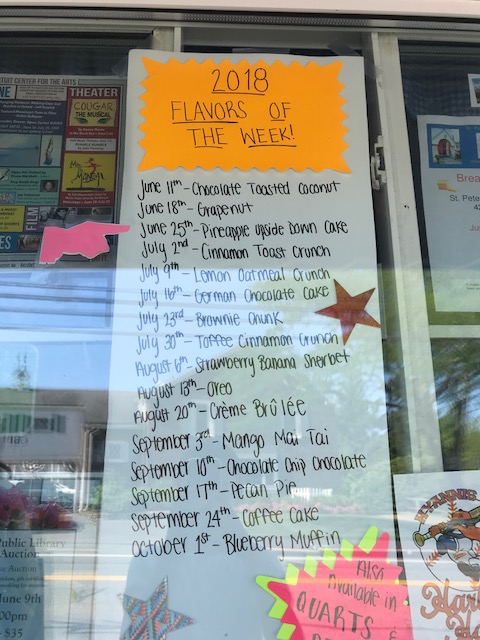 2018
FLAVORS OF
THE WEEK!
June 11th - Chocolate Toasted Coconut
June 18th - Grapenut
June 25th - Pineapple Upside Down Cake
July 2nd - Cinnamon Toast Crunch
July 9th - Lemon Oatmeal Crunch
July 16th - German Chocolate Cake
July 23rd - Brownie Chunk
July 30th - Toffee Cinnamon Crunch
August 6th - Strawberry Banana Sherbet
August 13th - Oreo
August 20th - Crème Brûlée
September 3rd - Mango Mai Tai
September 10th - Chocolate Chip Chocolate
September 17th - Pecan Pie
September 24th - Coffee Cake
October 1st - Blueberry Muffin
Also
Available in
QUARTS
CENTER FOR THE ARTS
THEATER
COUGAR
THE MUSICAL
FILM
Brea
St. Pete
Public Library
Auction
June 9th
00pm
- $35
HYANNIS
Har